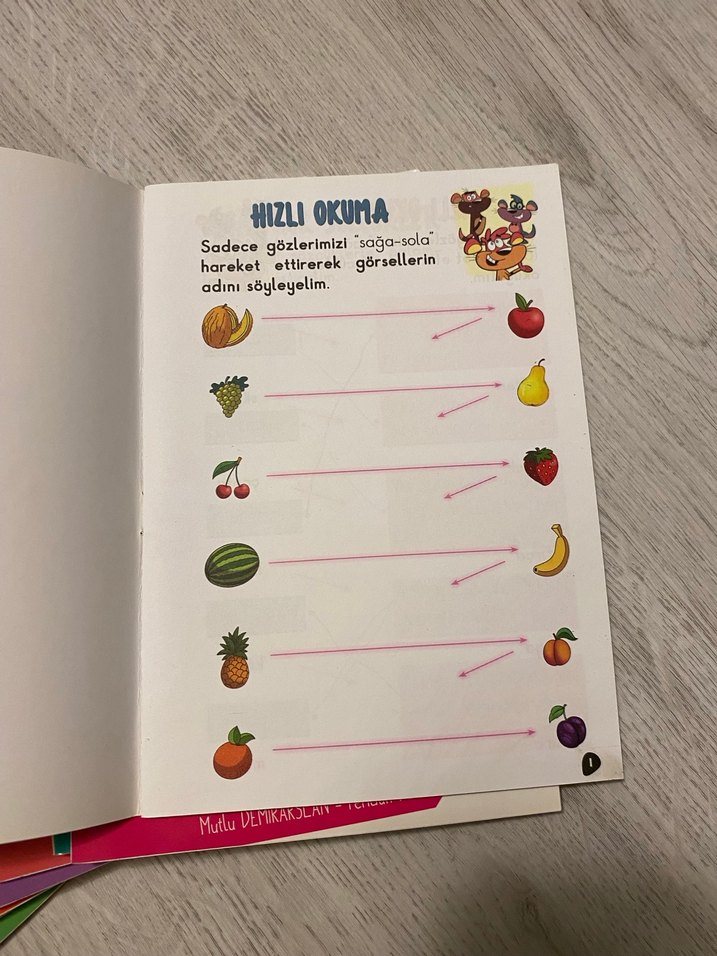 HIZLI OKUMA
Sadece gözlerimizi "sağa-sola"
hareket ettirerek görsellerin
adını söyleyelim.
1
Mutlu DEMİRARSLAN -